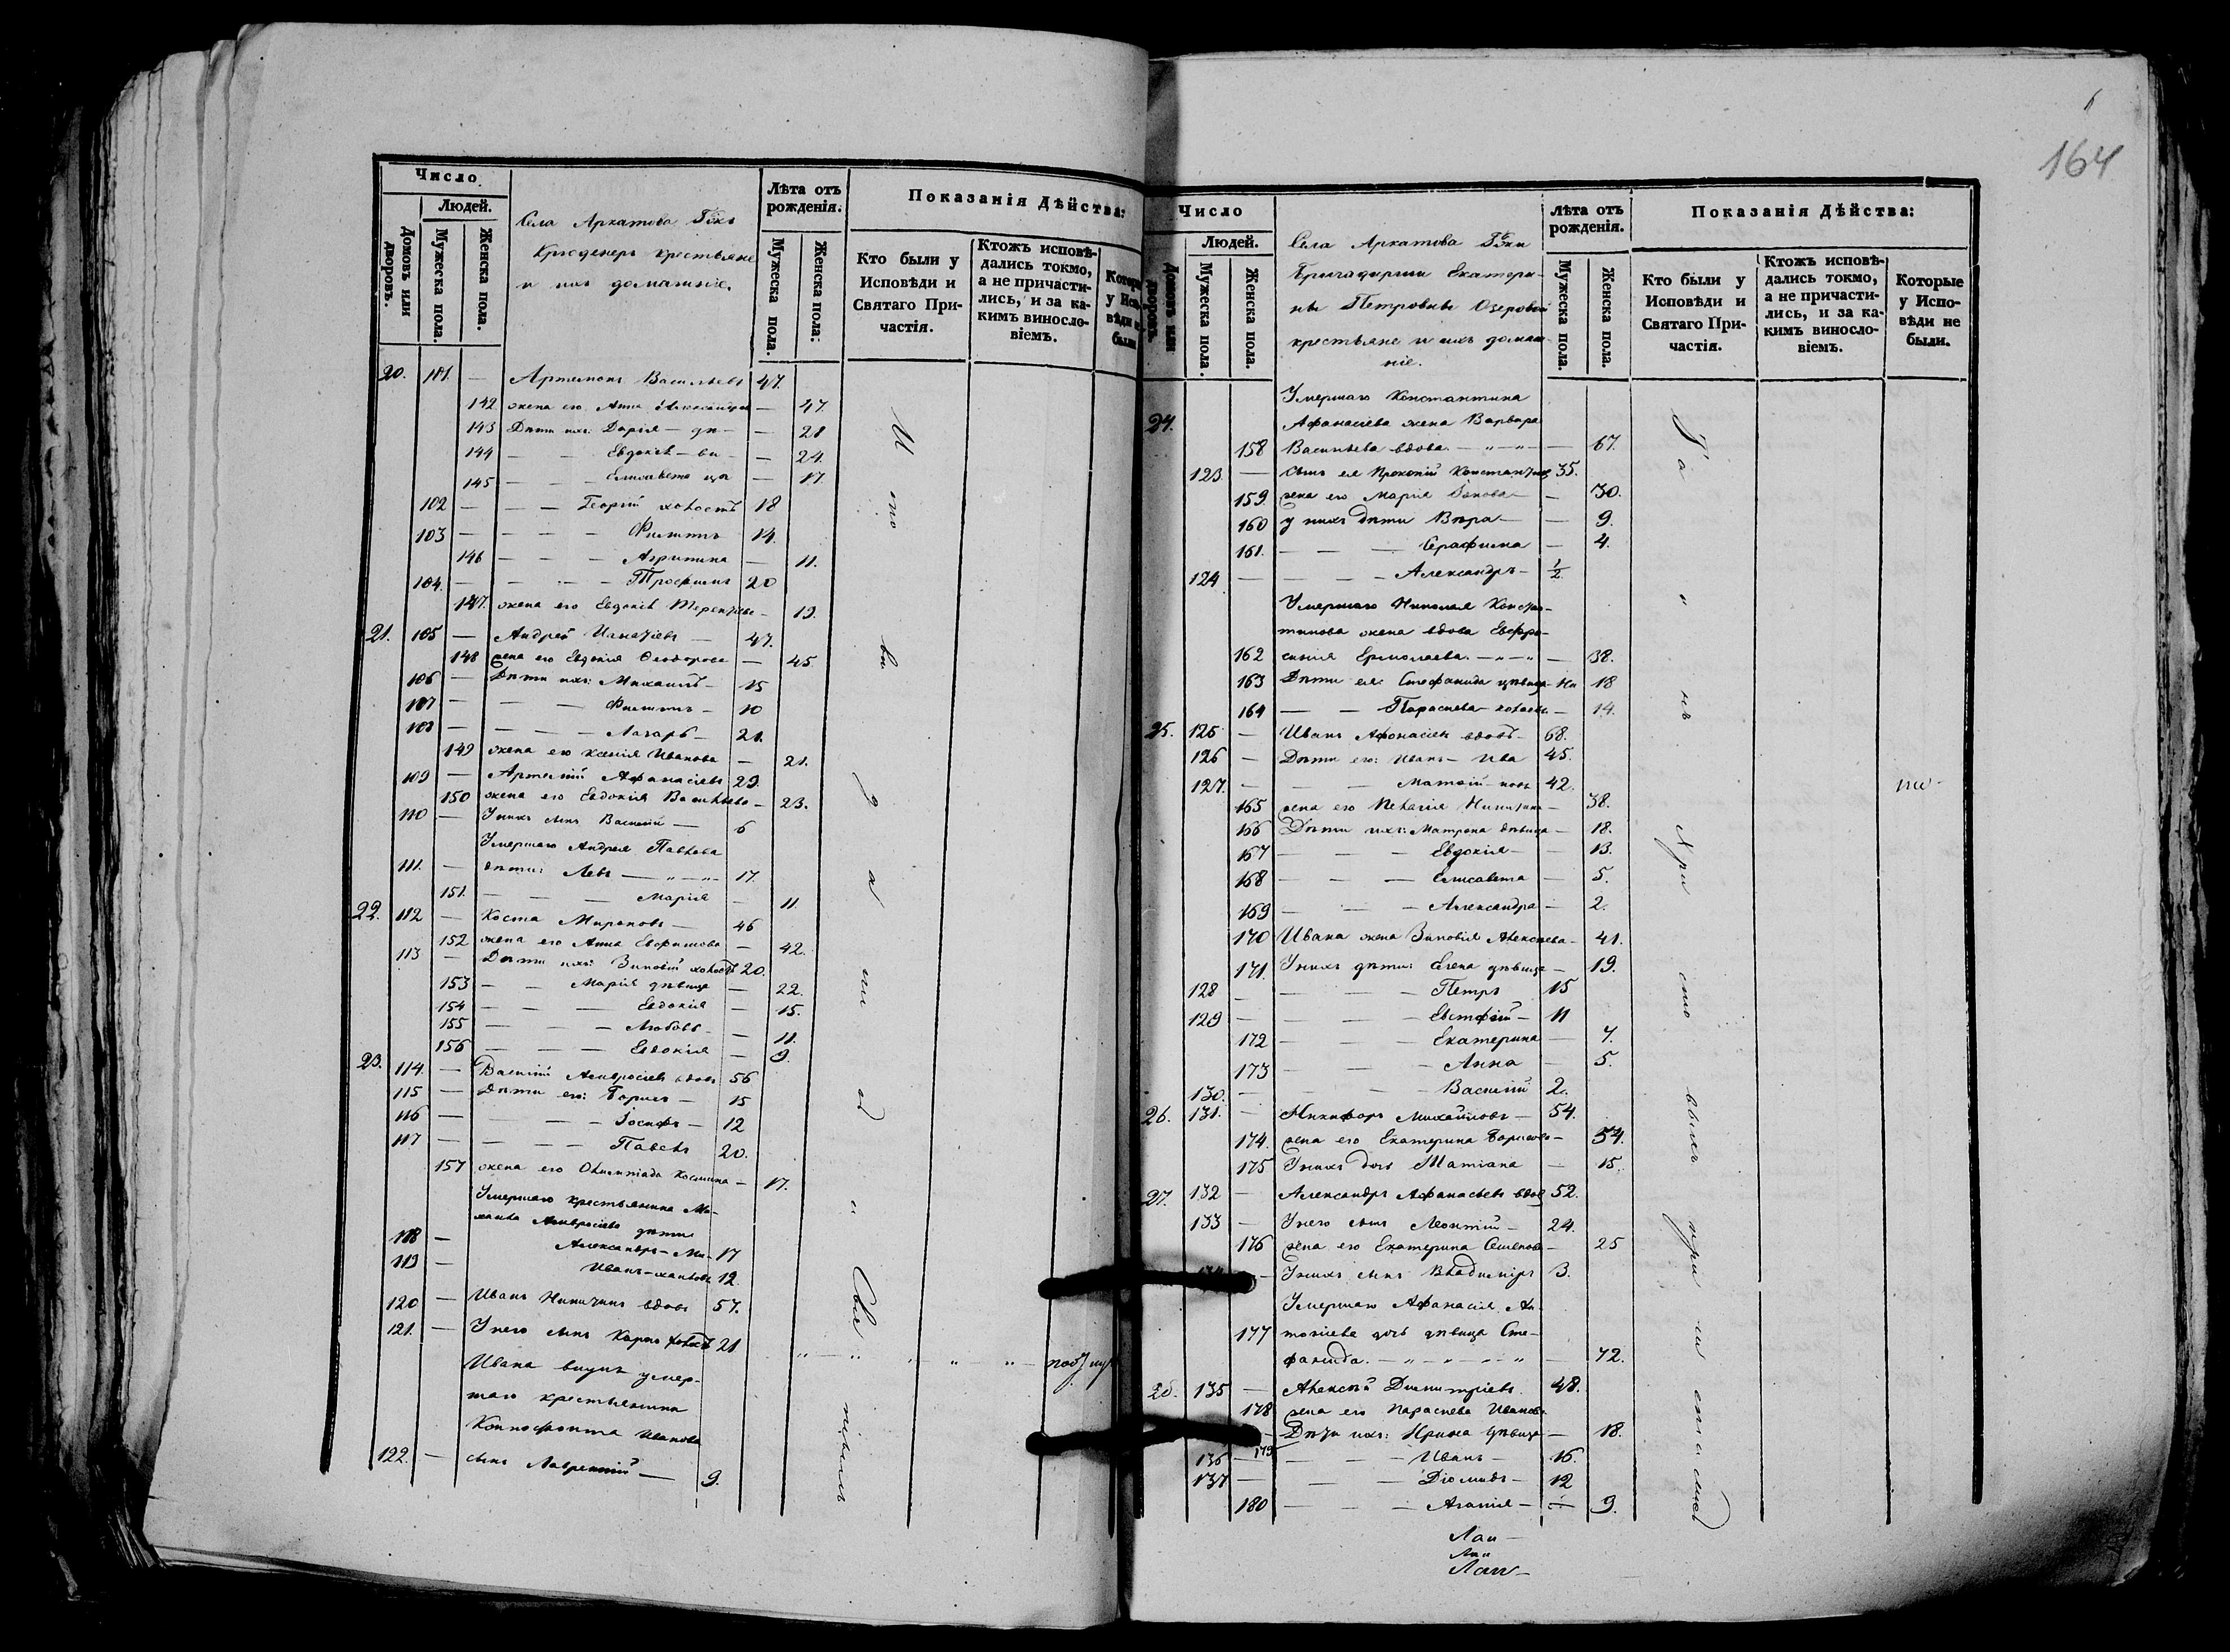 Число
Людей.
Домовъ или дворовъ.
Мужеска пола.
Женска пола.
Села Архатова
крестьяне
и ихъ домашніе.
Лѣта отъ рожденія.
Мужеска пола.
Женска пола.
Показанія Дѣйства:
Кто были у Исповѣди и Святаго Причастія.
Ктожъ исповѣдались токмо, а не причастились, и за какимъ винословіемъ.
20. 101. — Артемонъ Васильевъ 47.
142 жена его Анна — 47.
143 Дѣти ихъ: Дарія — — 28
144 — — Евдокія — — 24.
145 — — Елисавета — 17
102 — — — Георгій холостъ 18
103 — — — — Филиппъ 14.
146 — — — Агрипина — 11.
104. — — — — Трофимъ 20
147. жена его Евдокія — 19.
21. 105 — Андрей Игнатіевъ — 47.
148 жена его Евдокія Ѳеодорова — 45
106 — Дѣти ихъ: Михаилъ — 15
107 — — — Филиппъ — 10
108 — — — — Лазарь — 21.
149 жена его Ксенія Иванова — 21.
109 — Артемій Афанасіевъ 29.
150 жена его Евдокія Васильева — 23.
110 — У нихъ сынъ Василій — 6
Умершаго Андрея Павлова
111. — дѣти: Левъ — 17.
151. — — — Марія — 11.
22. 112 — Косма Мироновъ — 46
152 жена его Анна — 42.
113 — Дѣти ихъ: Зиновій холостъ 20.
153 — — Марія дѣвица — 22.
154 — — — Евдокія — 15.
155 — — — Любовь — — 11.
156 — — — Евдокія — 9.
23. 114. — Василій Амвросіевъ вдовъ 56
115 — Дѣти его: Борисъ — 15
116 — — — Іосифъ — 12
117 — — — — Павелъ 20.
157 жена его Олимпіада Космина — 17.
Умершаго крестьянина Ми-
хаила Амвросіева дѣти
118 — Александръ — Ми- 17
119 — Иванъ — хаиловъ 12.
120 — Иванъ Никитинъ вдовъ 57.
121. — У него сынъ Карпъ холостъ 21
Ивана внукъ умер-
шаго крестьянина
Ксенофонта Иванова
122. — сынъ Лаврентій — 9.
164
Число
Людей.
Домовъ или дворовъ.
Мужеска пола.
Женска пола.
Села Архатова Гжи
Бригадирши Екатери-
ны Петровны Озеровой
крестьяне и ихъ домаш-
ніе.
Лѣта отъ рожденія.
Мужеска пола.
Женска пола.
Показанія Дѣйства:
Кто были у Исповѣди и Святаго Причастія.
Ктожъ исповѣдались токмо, а не причастились, и за какимъ винословіемъ.
Которые у Исповѣди не были.
Умершаго Константина
24. Афанасіева жена Варвара
158 Васильева вдова — 67.
123 — сынъ ея Прокопій 35.
159. жена его Марія — 30.
160 у нихъ дѣти Вѣра — — 9.
161. — — — Серафима — 4.
124 — — — — Александръ — ½
Умершаго Николая Конста-
тинова жена вдова Евфро-
162 синія Ермолаева. — 38.
163 Дѣти ея: Стефанида дѣвица — Ни 18
164 — — Параскева — — 14.
25. 125 — Иванъ Афонасіевъ вдовъ — 68.
126 — Дѣти его: Иванъ — Ива 45.
127. — — — Матѳій — новъ 42.
165 жена его Пелагія — 38.
166 Дѣти ихъ: Матрона дѣвица — 18.
167 — — — Евдокія — — 13.
168 — — — Елисавета — 5.
169 — — — Александра — 2.
170 Ивана жена Зиновія Алексѣева — 41.
171. У нихъ дѣти: Елена дѣвица — 19.
128 — — — — Петръ 15
129 — — — — Евстафій — 11
172 — — — Екатерина — 7.
173 — — — Анна — 5.
130. — — — — Василій 2.
26. 131. — Никифоръ Михайловъ — 54.
174. жена его Екатерина Борисова — 54.
175 У нихъ дочь Татіана — 15.
27. 132 — Александръ Афанасьевъ вдов 52.
133 — У него сынъ Леонтій — 24.
176 жена его Екатерина Семенова — 25
— У нихъ сынъ Владимиръ 3.
Умершаго Афанасія Ан-
177 тоніева дочь дѣвица Сте-
фанида. — 72.
28. 135 — Алексѣй Димитріевъ. 48.
178 жена его Параскева Иванова
179 Дѣти ихъ: Ирина дѣвица — 18.
136 — — — — Иванъ — 16.
137 — — — Діомидъ — 12
180 — — — Агапія — — 9.
И сповѣдани и Святыхъ
Таинъ Христовыхъ пріобщились